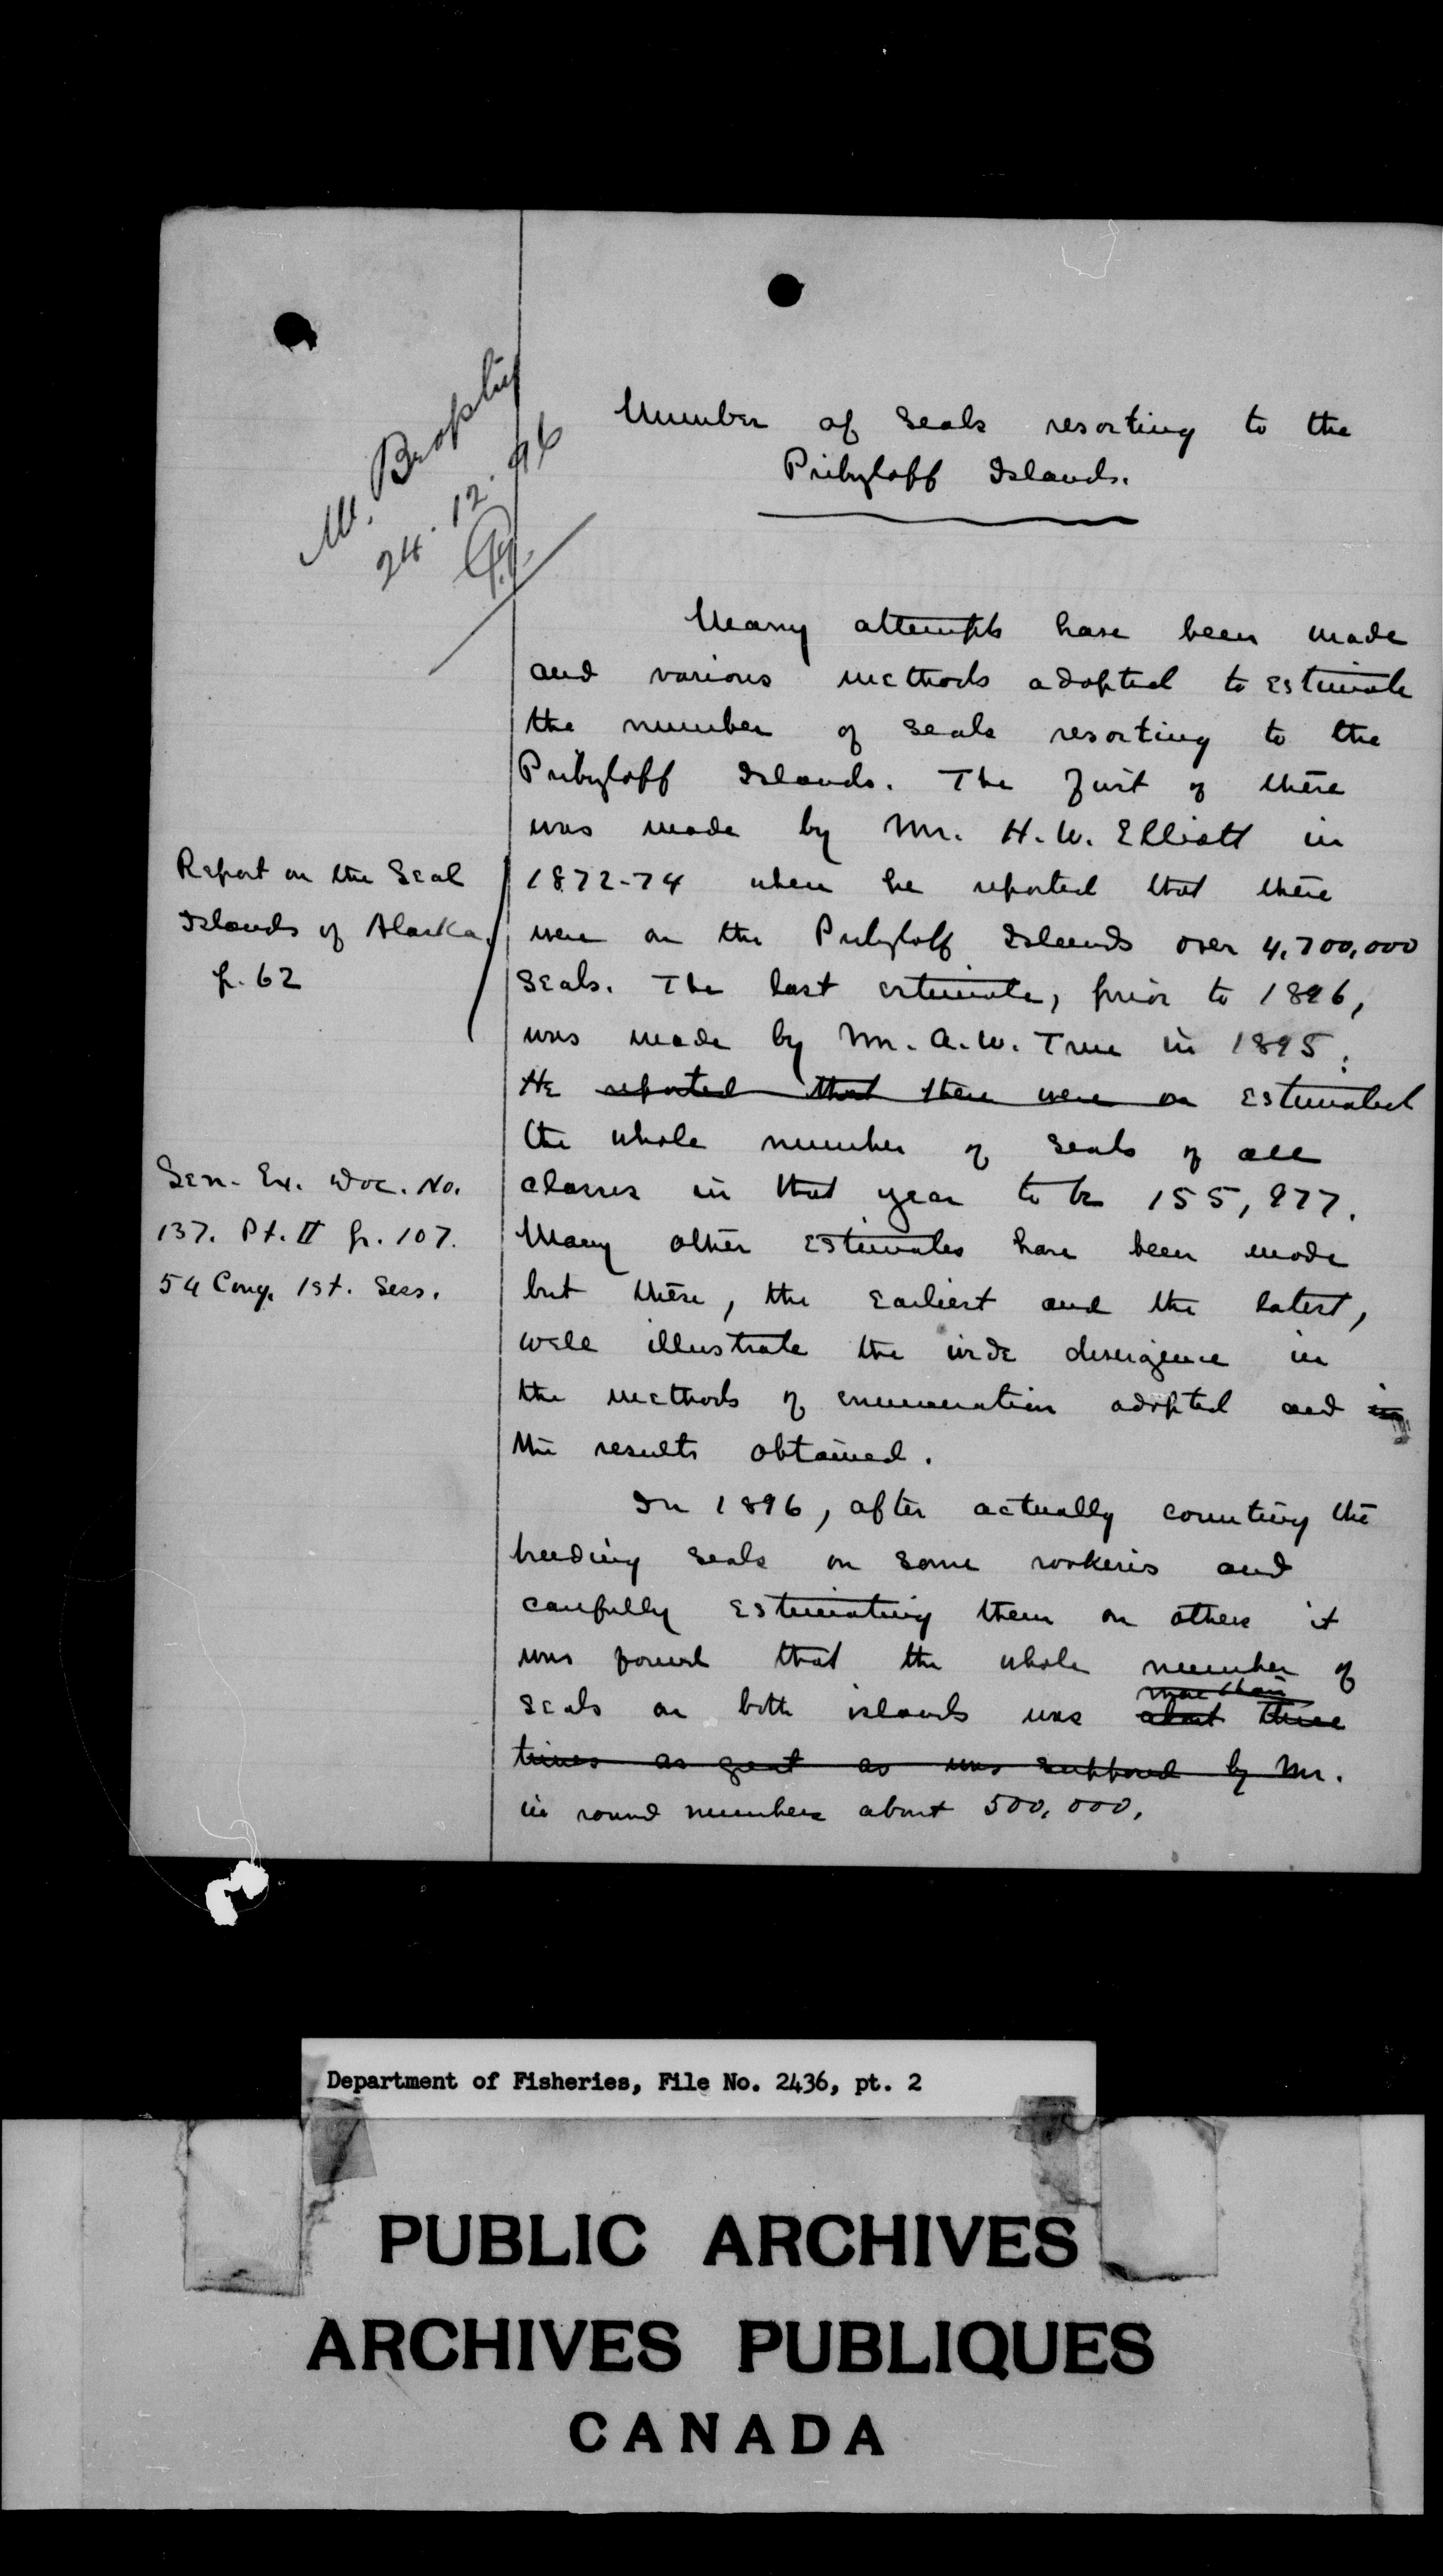 M. Brophy
24.12.96
Number of Seals resorting to the
Pribyloff Islands.
Many attempts have been made
and various methods adopted to estimate
the number of seals resorting to the
Pribyloff Islands. The first of these
was made by Mr. H.W. Elliott in
1872-74 when he reported that there
were on the Pribyloff Islands over 4,700,000
seals. The last estimate, prior to 1896,
was made by Mr. A.W. True in 1895.
He reported that there were on estimated
the whole number of seals of all
classes in that year to be 155,977.
Many other estimates have been made
but these, the earliest and the latest,
well illustrate the wide divergence in
the methods of enumeration adopted and in
the results obtained.
In 1896, after actually counting the
breeding seals on some rookeries and
carefully estimating them on others it
was found that the whole number of
more than
seals on both islands was about three
times as great as was supposed by Mr.
in round numbers about 500,000,
Report on the Seal
Islands of Alaska,
p. 62
Sen. Ex. Doc. No.
137. Pt. II p. 107.
54 Cong. 1st. Sess.
Department of Fisheries, File No. 2436, pt. 2
PUBLIC ARCHIVES
ARCHIVES PUBLIQUES
CANADA